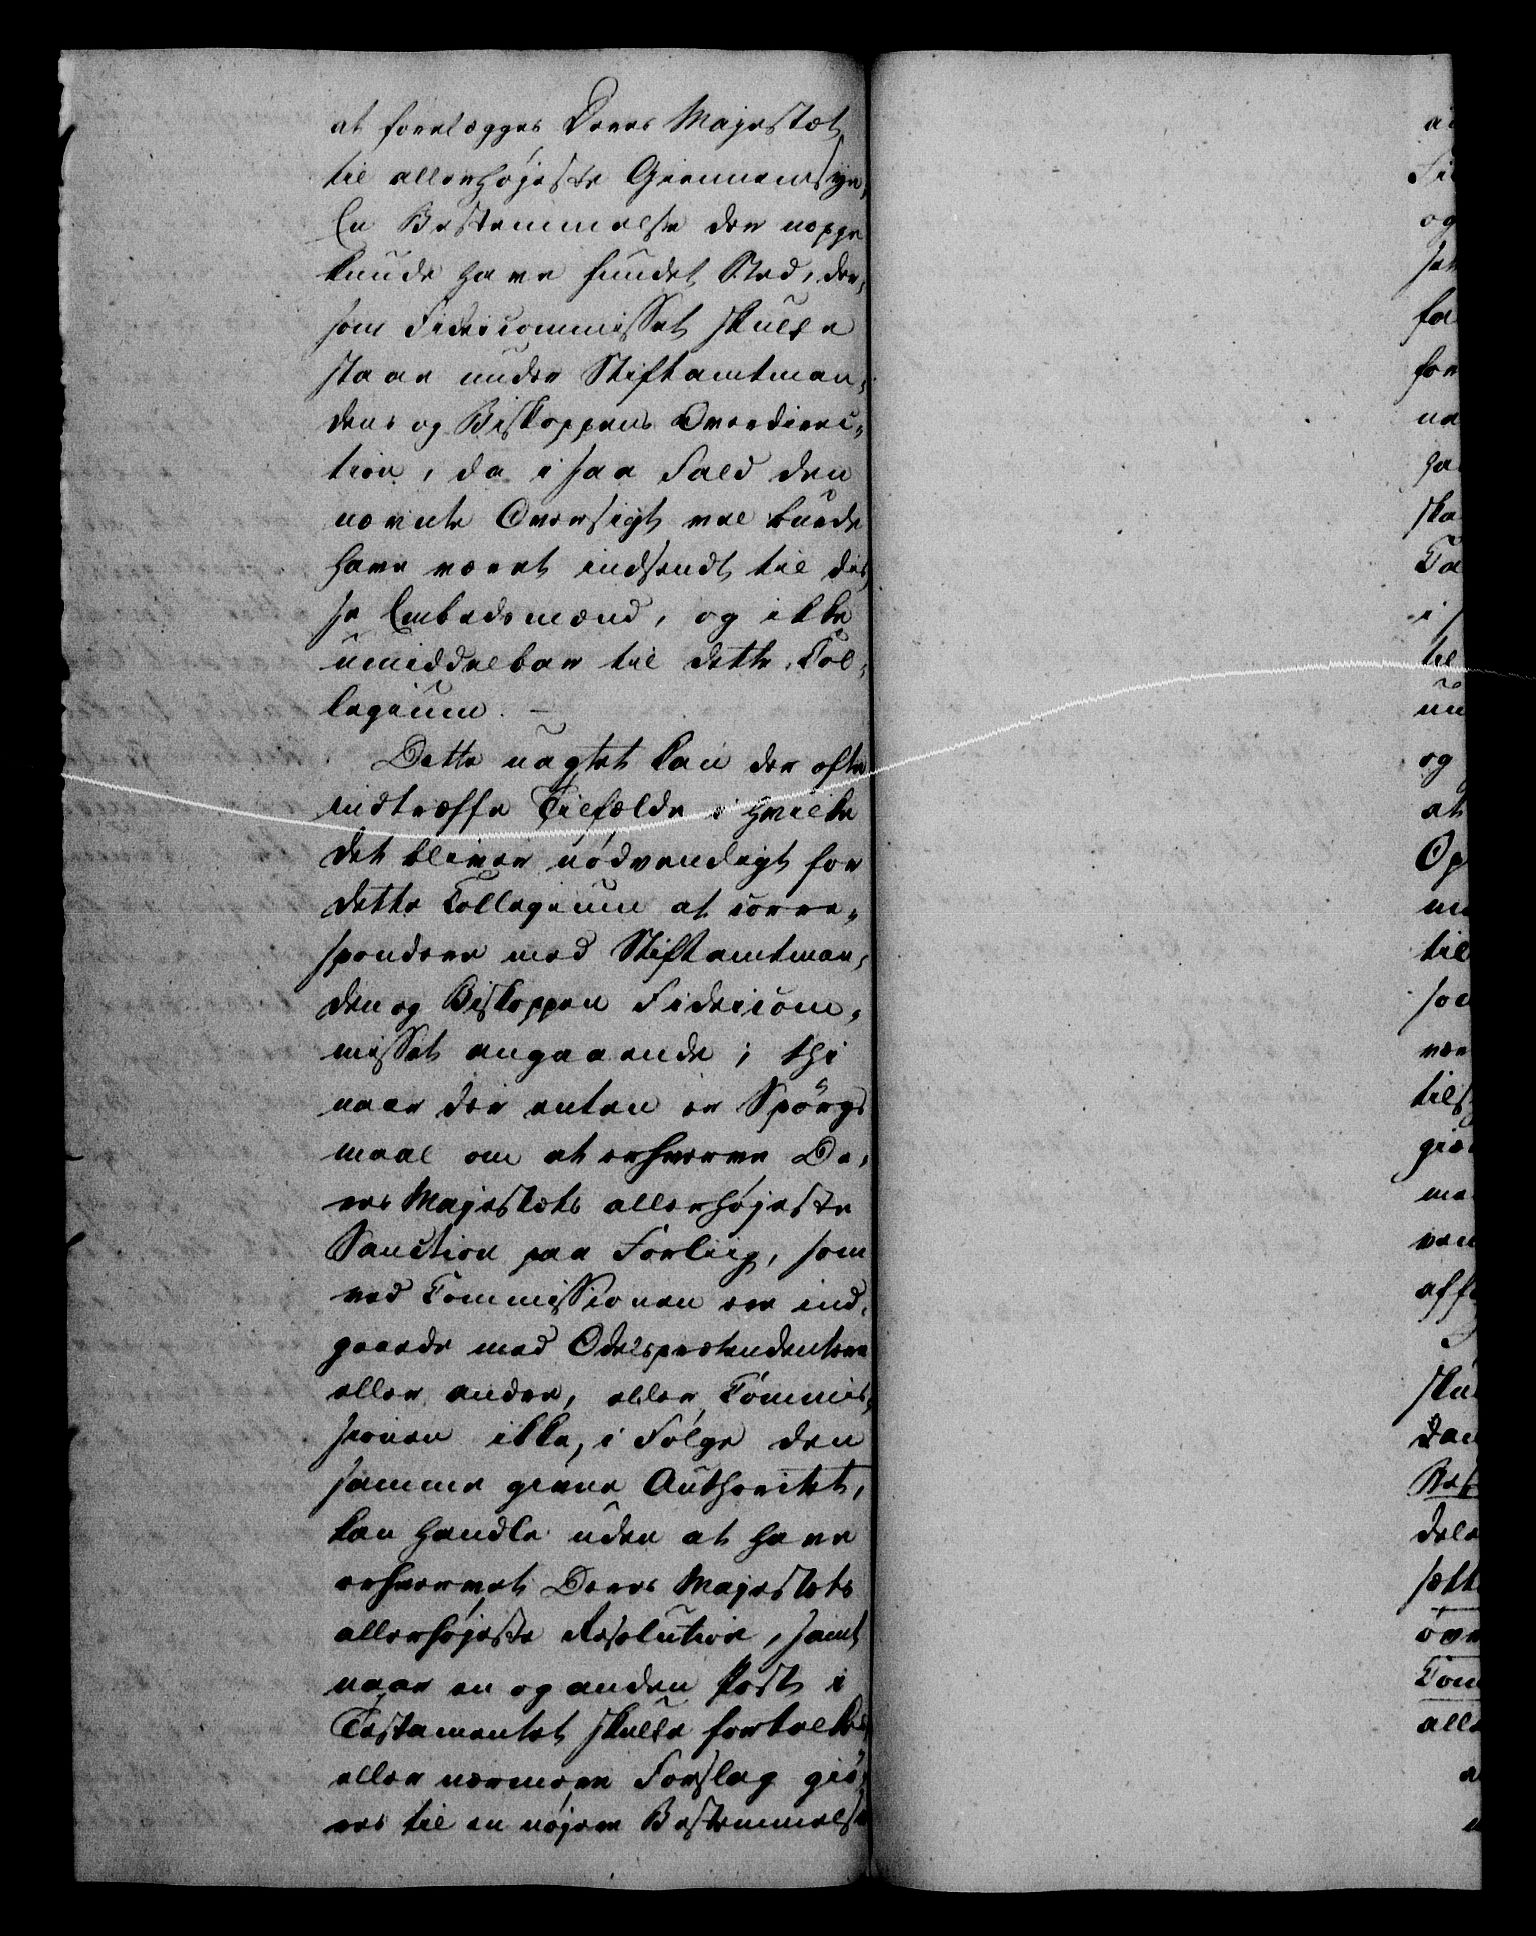 at forelægges Deres Majestæt
til allerhøjeste Giennemsyn,
En Bestemmelse der neppe
kunde have fundet Sted, der,
som Fideicommisset skulle
staae under Stiftamtman,
dens og Biskoppens Overdirec-
tion, da i saa Fald den
nævnte Oversigt vel burde
have været indsendt til dis,
se Embedsmænd, og ikke
umiddelbar til dette Col-
legium. —
Dette uagtet kan der ofte
indtræffe Tilfælde i hvilke
det bliver nødvendigt for
dette Collegium at corre-
spondere med Stiftamtman,
den og Biskoppen Fideicom,
misset angaaende; thi
naar der enten er Spørgs
maal om at erhverve De,
res Majestæts allerhøjeste
Sanction paa Forliig, som
ved Commissionen ere ind,
gaaede med Odelsprætendentere
eller andre, eller Commis,
sionen ikke, i Følge den
samme givne Authoritet,
kan handle uden at have
erhvervet Deres Majestæts
allerhøjeste Resolution, samt
naar en og anden Post i
Testamentet skulle fortolkes
eller nærmere Forslag giø,
res til en nøjere Bestemmelse
og
til
og
at
til